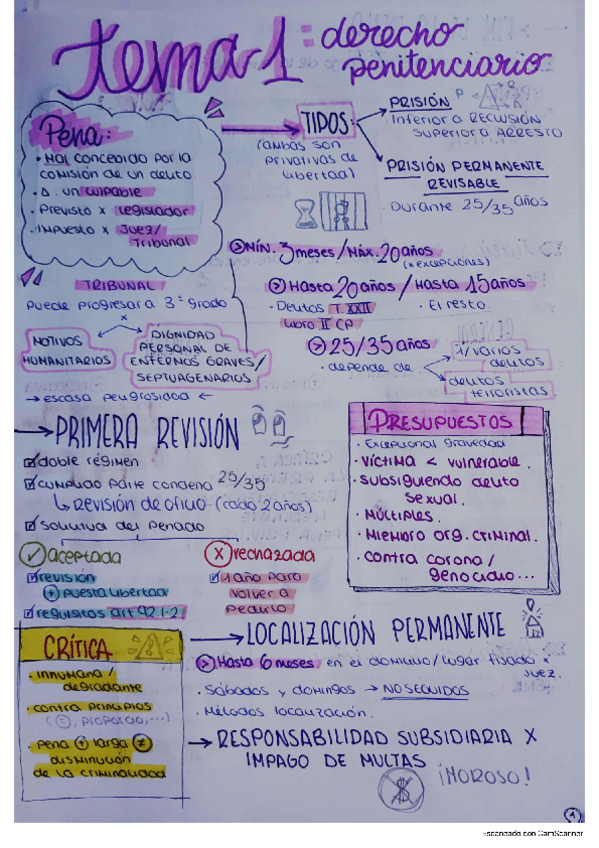 tema 1: derecho
penitenciario
Pena:
· Mal concebido por la
comisión de un delito.
· A un culpable
· Previsto x legislador
· Impuesto x Juez/
Tribunal
TIPOS:
(ambas son
privativas de
libertad)
PRISIÓN
Inferior a RECLUSIÓN
Superior a ARRESTO
PRISIÓN PERMANENTE
REVISABLE
· Durante 25/35 años
> MÍN. 3 meses / MÁX. 20 años
(*excepciones)
> Hasta 20 años / Hasta 15 años
· Delitos T. XXII
Libro II CP
· El resto.
> 25/35 años
· depende de
1/varios
delitos
delitos
terroristas.
TRIBUNAL
puede progresar a 3er grado
x
MOTIVOS
HUMANITARIOS
DIGNIDAD
PERSONAL DE
ENFERMOS GRAVES/
SEPTUAGENARIOS
→ escasa peligrosidad ←
→ PRIMERA REVISIÓN
☑ doble régimen
☑ cumplido parte condena 25/35
↳ Revisión de oficio (cada 2 años)
☑ solicitud del penado
✓ aceptada
☑ revisión
+ puesta libertad
☑ requisitos art 92.1-2
X rechazada
☑ 1 año para
volver a
pedirlo
PRESUPUESTOS
· Excepcional gravedad
· Víctima < vulnerable.
· subsiguiendo delito
sexual.
· Múltiples.
· Miembro org. criminal.
· contra corona/
genocidio...
CRÍTICA
· inhumana/
degradante
· contra principios
(=, proporció,...)
· pena + larga ≠
disminución
de la criminalidad
→ LOCALIZACIÓN PERMANENTE
> Hasta 6 meses en el domicilio/lugar fijado x
juez.
· Sábados y domingos → NO SEGUIDOS
· Métodos localización.
→ RESPONSABILIDAD SUBSIDIARIA X
IMPAGO DE MULTAS
¡MOROSO!
$
1
Escaneado con CamScanner